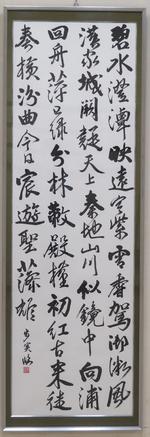 碧水澄潭映遠空紫雲香駕御微風
漢家城闕疑天上秦地山川似鏡中向浦
回舟萍已綠分林蔽殿槿初紅古來徒
奏橫汾曲今日宸遊聖藻雄